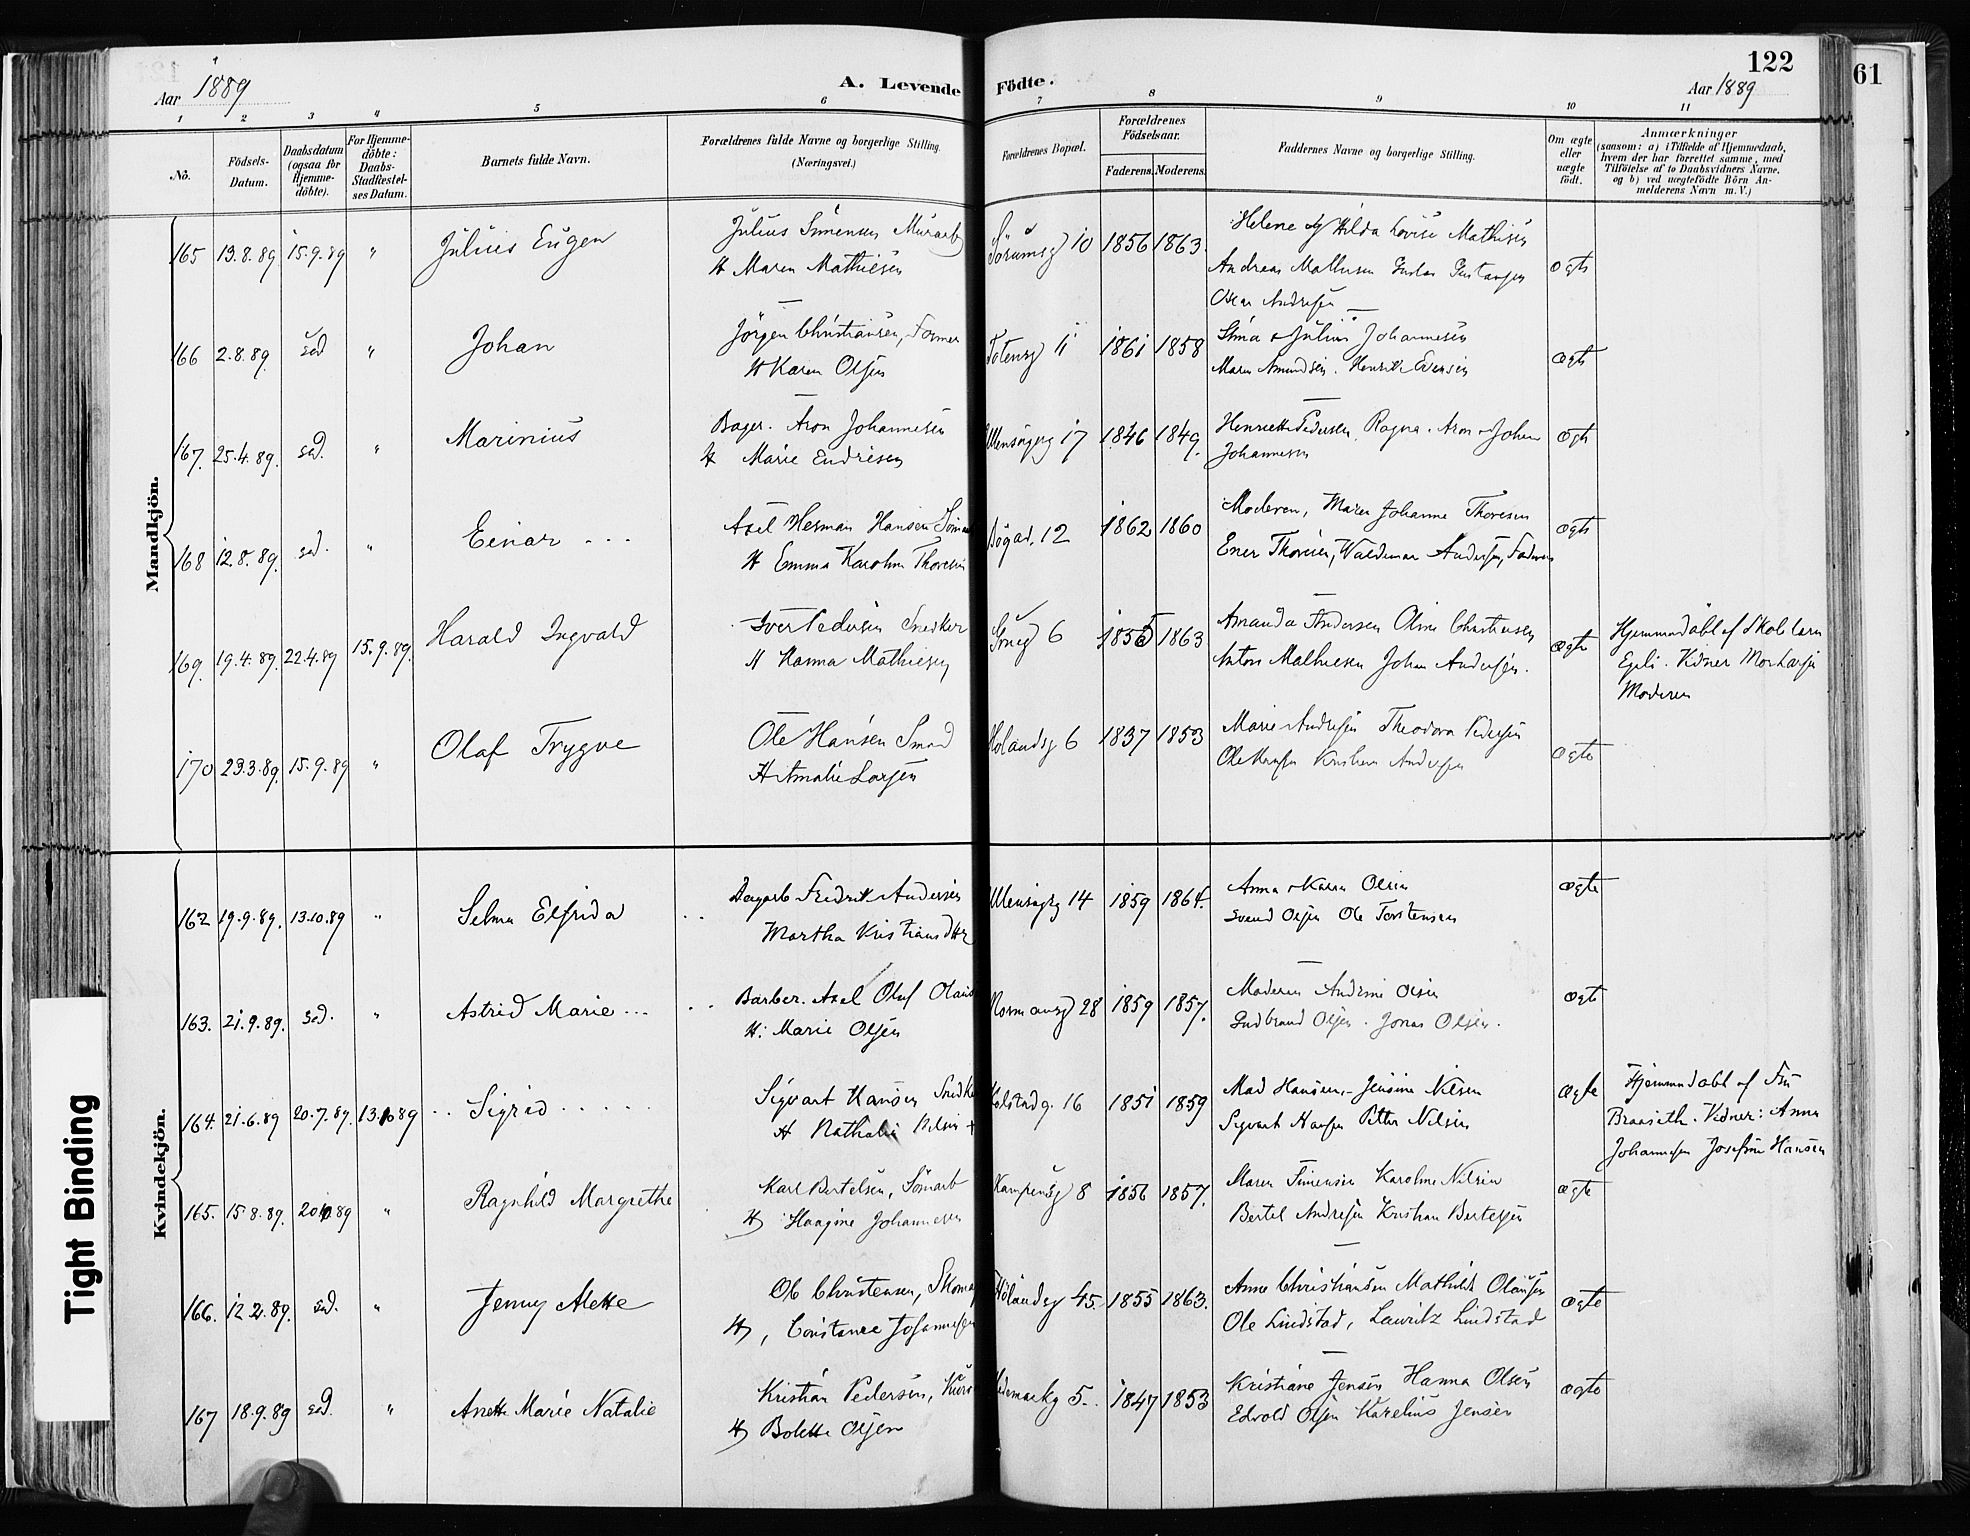 122
61
Aar 1889
A. Levende Födte.
Aar 1889
1 2 3 4 5 6 7 8 9 10 11
No.
Födsels-Datum.
Daabsdatum (ogsaa for Hjemme-döbte).
For Hjemme-döbte: Daabs-Stadfestel-ses Datum.
Barnets fulde Navn.
Forældrenes fulde Navne og borgerlige Stilling. (Næringsvei.)
Forældrenes Bopæl.
Forældrenes Födselsaar.
Faderens. Moderens.
Faddernes Navne og borgerlige Stilling.
Om ægte eller uægte födt.
Anmærkninger
(saasom: a) i Tilfælde af Hjemmedaab, hvem der har forrettet samme, med Tilföielse af to Daabsvidners Navne, og b) ved uægtefödte Börn An-melderens Navn m. V.)
Mandkjön.
165 13.8.89 15.9.89 " Julius Eugen
Julius Simensen Murarb
H Maren Mathiesen
Sörumsg 10 1856 1863
Helene og Hilda Lovise Mathisen
Andreas Mathisen Gustav Gustavsen
Oscar Andresen
ægte
166 2.8.89. sed " Johan
Jörgen Christiansen, Former
H Karen Olsen
Totensg 11 1861 1858
Stina & Julius Johannesen
Maren Amundsen. Henrik Evensen
ægte
167. 25.4.89. sed. " Marinius
Bager. Aron Johannesen
H Marie Endresen
Ullensagerg 17 1846 1849.
Henriette Pedersen, Ragna. Aron & Johan
Johannesen
ægte
168 12.8.89. sed. " Einar ...
Axel Herman Hansen
H Emma Karoline Thoresen
Bögad. 12 1862 1860
Moderen, Maren Johanne Thoresen
Ener Thoresen, Valdemar Andersen, Faderen
ægte
169. 19.4.89. 22.4.89 15.9.89. Harald Ingvald
Iver Pedersen Snedker
H Hanna Mathiesen
6 1855 1863
Amanda Andersen Oline Christiansen
Anton Mathiesen Johan Andersen.
ægte
Hjemmedöbt af Skolelærer
Egeli. Vidner
Moderen
170 23.3.89. 15.9.89 " Olaf Trygve
Ole Hansen Smed
H Amalie Larsen
Hölandsg 6 1837 1853
Marie Andresen Theodora Pedersen
Ole Hansen Kristian Andersen
ægte
Kvindekjön.
162 19.9.89. 13.10.89 " Selma Elfrida ..
Dagarb Fredrik Andersen
Martha Kristiansdtter
Ullensagerg 14 1859 1864.
Anna & Karen Olsen
Svend Olsen Ole Torstensen
ægte
163. 21.9.89. sed. " Astrid Marie ... ..
Barber. Axel Oluf
H: Marie Olsen
Normannsg 28 1859 1857.
Moderen Andrine Olsen
Gudbrand Olsen. Jonas Olsen.
ægte
164. 21.6.89 20.7.89. 13.10.89 .. Sigrid .....
Sigvart Hansen Snedker
H Nathalie Nilsen +
Kolstadg. 16 1851 1859
Mad Hansen, Jensine Nilsen
Sigvart Hansen Petter Nilsen
ægte
Hjemmedöbt af Fru
Braaseth. Vidner: Anna
Johannesen Josefine Hansen
165. 15.8.89. 20.10.89 " Ragnhild Margrethe
Karl Bertelsen, Sömarb
H Haagine Johannesen
Kampensg 8 1856 1857.
Maren Simensen Karoline Nilsen
Bertel Andresen Kristian Bertelsen
ægte
166. 12.2.89. sed. " Jenny Alette
Ole Christensen, Skomag
H, Constance Johannesen
Hölandsg 45. 1855 1863.
Anne Christiansen Mathilde Olausen
Ole Lindstad, Lauritz Lindstad
ægte
167 18.9.89 sed. " Anette Marie Natalie
Kristian Pedersen,
H Bolette Olsen
Hedemarkg 5. 1847 1853
Kristiane Jensen Hanna Olsen
Edvold Olsen Karelius Jensen
ægte
Tight Binding